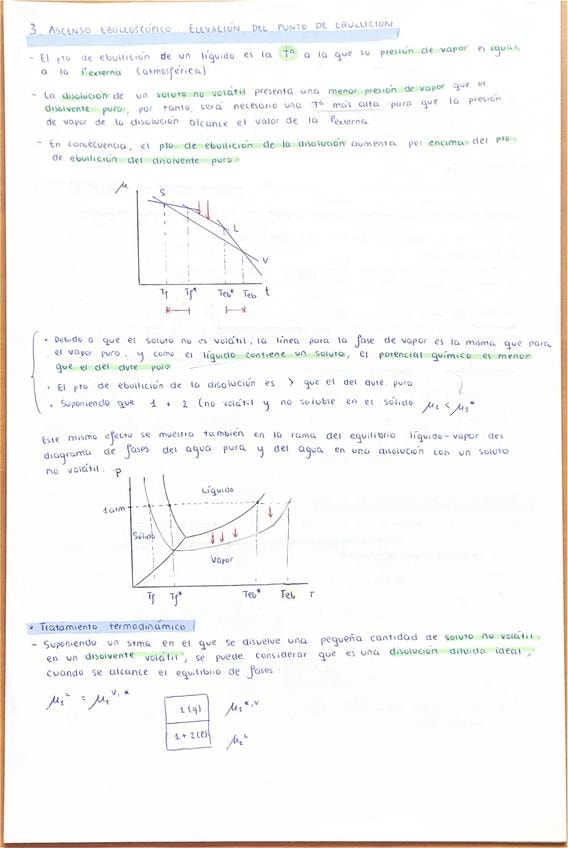 3. ASCENSO EBULLOSCÓPICO. ELEVACIÓN DEL PUNTO DE EBULLICIÓN
- El pto de ebullición de un líquido es la Tª a la que su presión de vapor es igual
a la Pexterna (atmosférica)
- La disolución de un soluto no volátil presenta una menor presión de vapor que el
disolvente puro, por tanto, será necesario una Tª más alta para que la presión
de vapor de la disolución alcance el valor de la Pexterna.
- En consecuencia, el pto de ebullición de la disolución aumenta por encima del pto
de ebullición del disolvente puro
μ
S
L
V
Tf Tf* Teb* Teb t
• Debido a que el soluto no es volátil, la línea para la fase de vapor es la misma que para
el vapor puro, y como el líquido contiene un soluto, el potencial químico es menor
que el del dvte puro
• El pto de ebullición de la disolución es > que el del dvte. puro
• Suponiendo que 1 + 2 (no volátil y no soluble en el sólido μ1 < μ1*
Este mismo efecto se muestra también en la rama del equilibrio líquido-vapor del
diagrama de fases del agua pura y del agua en una disolución con un soluto
no volátil.
P
Líquido
1 atm
Sólido
Vapor
Tf Tf* Teb* Teb T
• Tratamiento termodinámico
- Suponiendo un stma en el que se disuelve una pequeña cantidad de soluto no volátil,
en un disolvente volátil, se puede considerar que es una disolución diluida ideal,
cuando se alcance el equilibrio de fases:
μ1^L = μ1^V,*
1(g) μ1^*,V
1+2(l) μ1^L